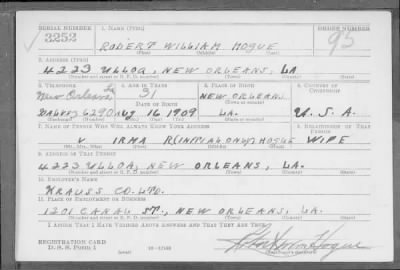 SERIAL NUMBER 1. NAME (Print) ORDER NUMBER
3252 ROBERT WILLIAM HOGUE 95
(First) (Middle) (Last)
2. ADDRESS (Print)
4223 ULLOA, NEW ORLEANS, LA
(Number and street or R. F. D. number) (Town) (County) (State)
3. TELEPHONE 4. AGE IN YEARS 5. PLACE OF BIRTH 6. COUNTRY OF CITIZENSHIP
New Orleans La 31 NEW ORLEANS
DATE OF BIRTH
6290 AUG 16 1909 LA. U. S. A.
7. NAME OF PERSON WHO WILL ALWAYS KNOW YOUR ADDRESS 8. RELATIONSHIP OF THAT PERSON
IRMA R(INITIAL ONLY) HOGUE WIFE
(Mr., Mrs., Miss) (First) (Middle) (Last)
9. ADDRESS OF THAT PERSON
4223 ULLOA, NEW ORLEANS, LA.
(Number and street or R. F. D. number) (Town) (County) (State)
10. EMPLOYER'S NAME
KRAUSS CO. LTD.
11. PLACE OF EMPLOYMENT OR BUSINESS
1201 CANAL ST., NEW ORLEANS, LA.
(Number and street or R. F. D. number) (Town) (County) (State)
I AFFIRM THAT I HAVE VERIFIED ABOVE ANSWERS AND THAT THEY ARE TRUE.
REGISTRATION CARD
D. S. S. Form 1 (over) 16-17105 Hogue